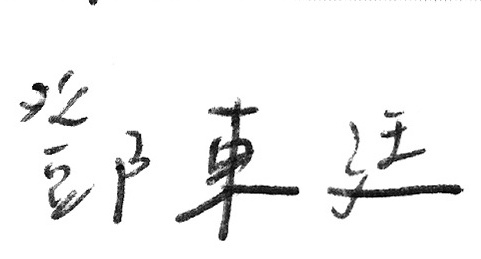 鄧東廷